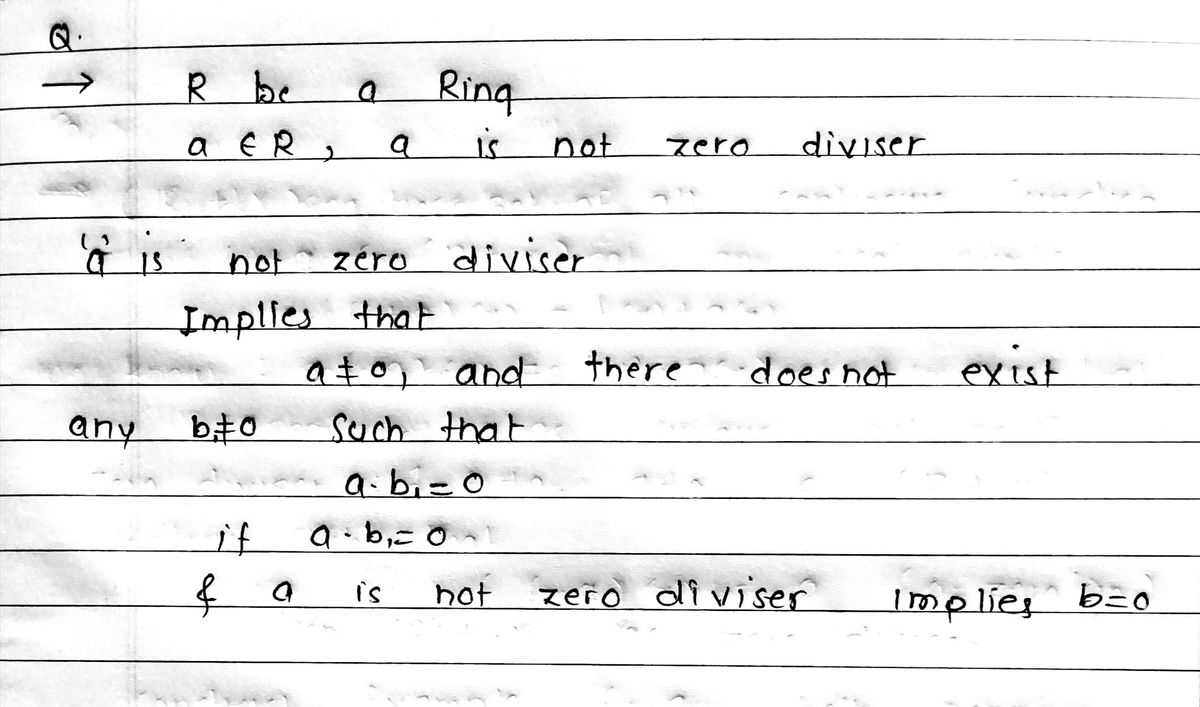 Q.
→ R be a Ring
a ∈ R, a is not zero diviser
'a' is not zero diviser
Implies that
a ≠ 0, and there does not exist
any b₁≠0 such that
a·b₁=0
if a·b₁=0
& a is not zero diviser implies b=0